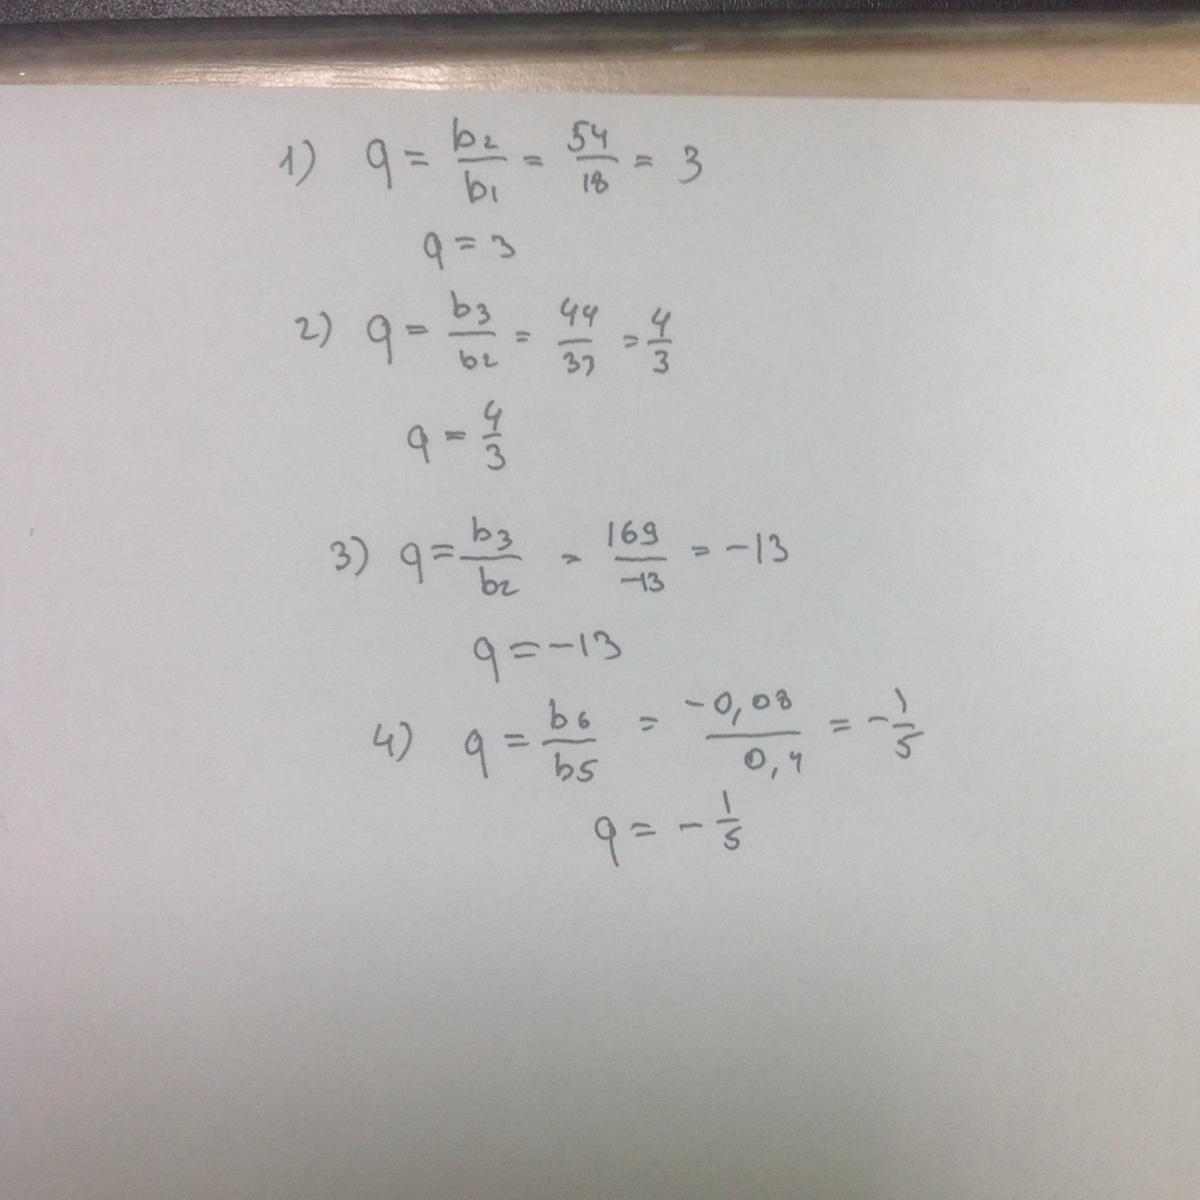 1) q = b2/b1 = 54/18 = 3
q = 3
2) q = b3/b2 = 44/33 = 4/3
q = 4/3
3) q = b3/b2 = 169/-13 = -13
q = -13
4) q = b6/b5 = -0,08/0,4 = -1/5
q = -1/5